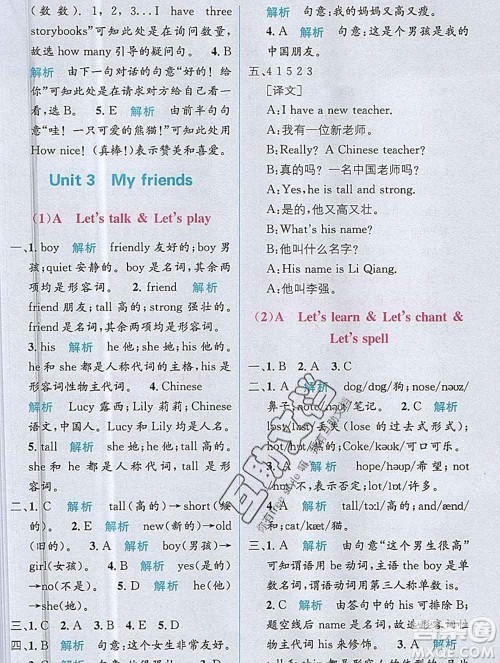 (数数). 1, 2, 3... “I have three
storybooks”可知此处在询问数量,
故选 how many 引导的疑问句。 4. B
解析 由下一句对话的句意“好的!给
你”可知此处是在请求对方给自己看一
看,选 B。 5. E 解析 由前半句句
意“哇!一只可爱的熊猫!”可知此处用
How nice! (真棒!)表示赞美和喜爱。
Unit 3 My friends
(1)A Let's talk & Let's play
一、1. boy 解析 friendly 友好的;boy 男
孩;quiet 安静的。boy 是名词,其余两
项均是形容词。 2. friend 解析
friend 朋友;tall 高的;strong 强壮的。
friend 是名词,其余两项均是形容词。
3. his 解析 he 他;she 她;his 他的。
he 和 she 是人称代词的主格,his 是
形容词性物主代词。 4. Chinese
解析 Lucy 露西;Lily 莉莉;Chinese
语文,中国人。Lucy 和 Lily 均是人名。
5. tall 解析 she 她;he 他;tall 高的。
she 和 he 都是人称代词,tall 是形
容词。
二、1. C 解析 tall(高的)→short(矮
的)。 2. E 解析 new(新的)→old
(旧的)。 3. A 解析 boy(男孩)→
girl(女孩)。 4. B 解析 yes(是
的)→no(不是)。 5. D 解析 he(他)
→she(她)。
三、1. C 2. D 3. A 4. B
四、1. B 解析 句意:这个男生很友好。
句意:我的妈妈又高又瘦。
4. A 解析 句意:这个男孩是我的
中国朋友。
五、4 1 5 2 3
[译文]
A:I have a new teacher.
A:我有一位新老师。
B:Really? A Chinese teacher?
B:真的吗? 一名中国老师吗?
A:Yes, he is tall and strong.
A:是的,他又高又壮。
B:What's his name?
B:他叫什么名字?
A:His name is Li Qiang.
A:他叫李强。
(2)A Let's learn & Let's chant &
Let's spell
一、1. B 2. A 3. C 4. A 5. C
二、1. A 解析 dog/dɒg/狗;nose/nəʊz/
鼻子;note/nəʊt/笔记。 2. C 解析
lost/lɒst/丢失(lose 的过去式形式);
hot/hɒt/热的;Coke/kəʊk/可口可乐。
3. A 解析 hope/həʊp/希望;
not/nɒt/不;lot/lɒt/许多。 4. C 解析
and/ænd/和;cat/kæt/猫。
三、1. A 解析 由句意“这个男生很高”
可知,句中的主语 the boy 是单
数名词,谓语动词用第三人称单数 is。
2. D 解析 由答句中的 his 可排除 B;
题目空线后面有名词,用形容词性
物主代词 his 来修饰。